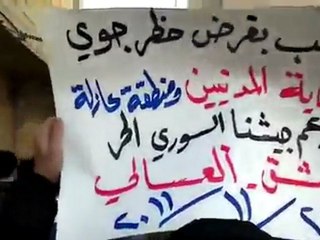 ـب بفرض حظر جوي
ـاية المدنيين ومنطقة عازلة
ـعم جيشنا السوري الحر
ـشق - العسالي
٢٠١١/١١/٢